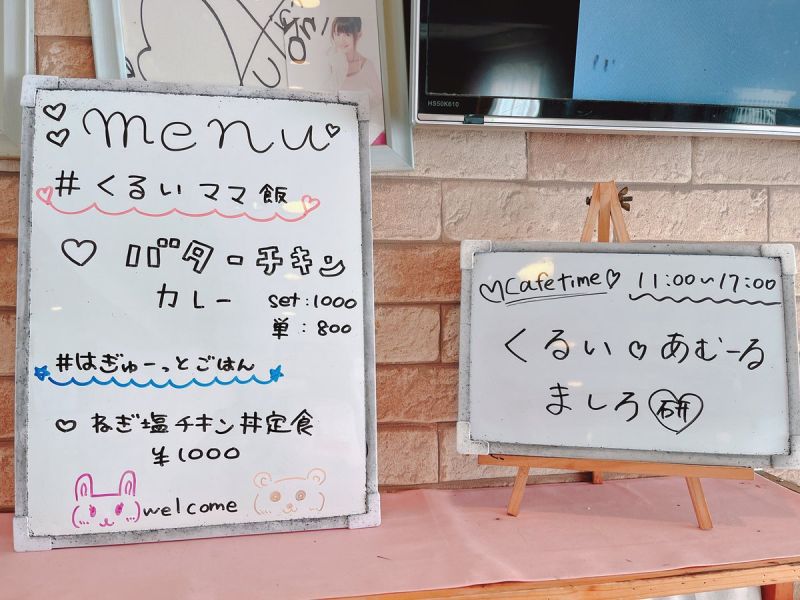 menu
#くるいママ飯
バターチキン
カレー set:1000
単:800
#はぎゅーっとごはん
ねぎ塩チキン丼定食
¥1000
welcome
HS50K610
Cafetime 11:00~17:00
くるい♡あむーる
ましろ 研